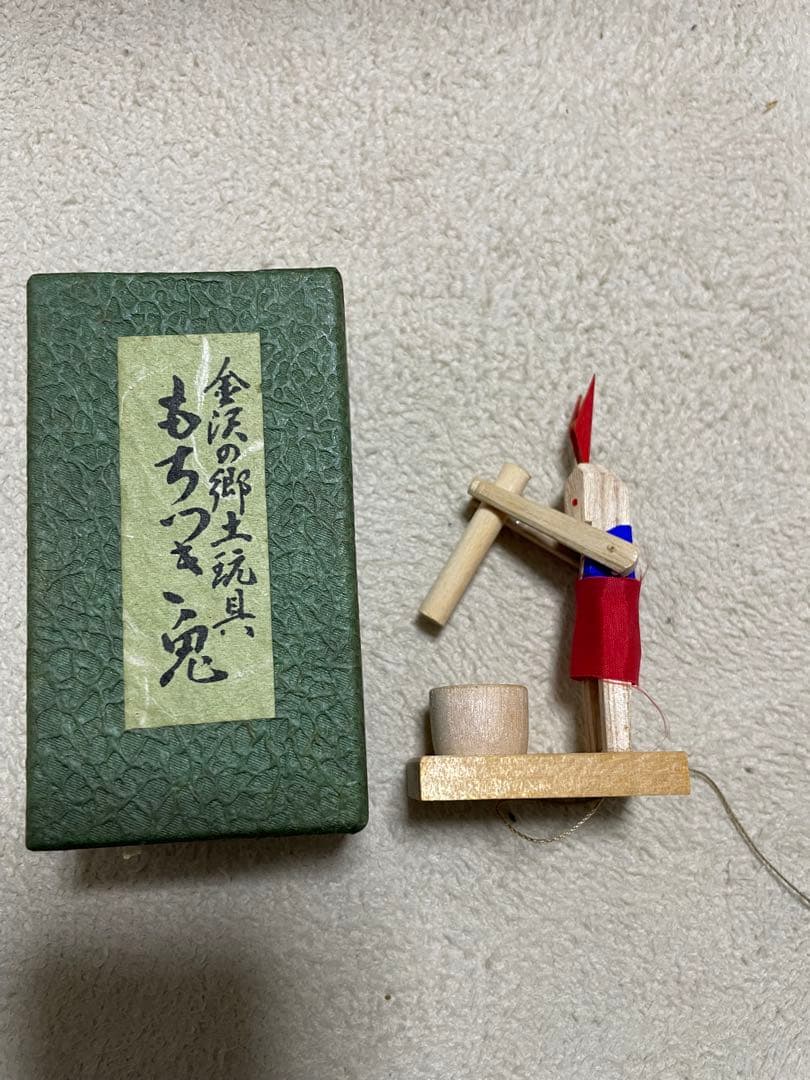 金沢の郷土玩具
もちつき兎